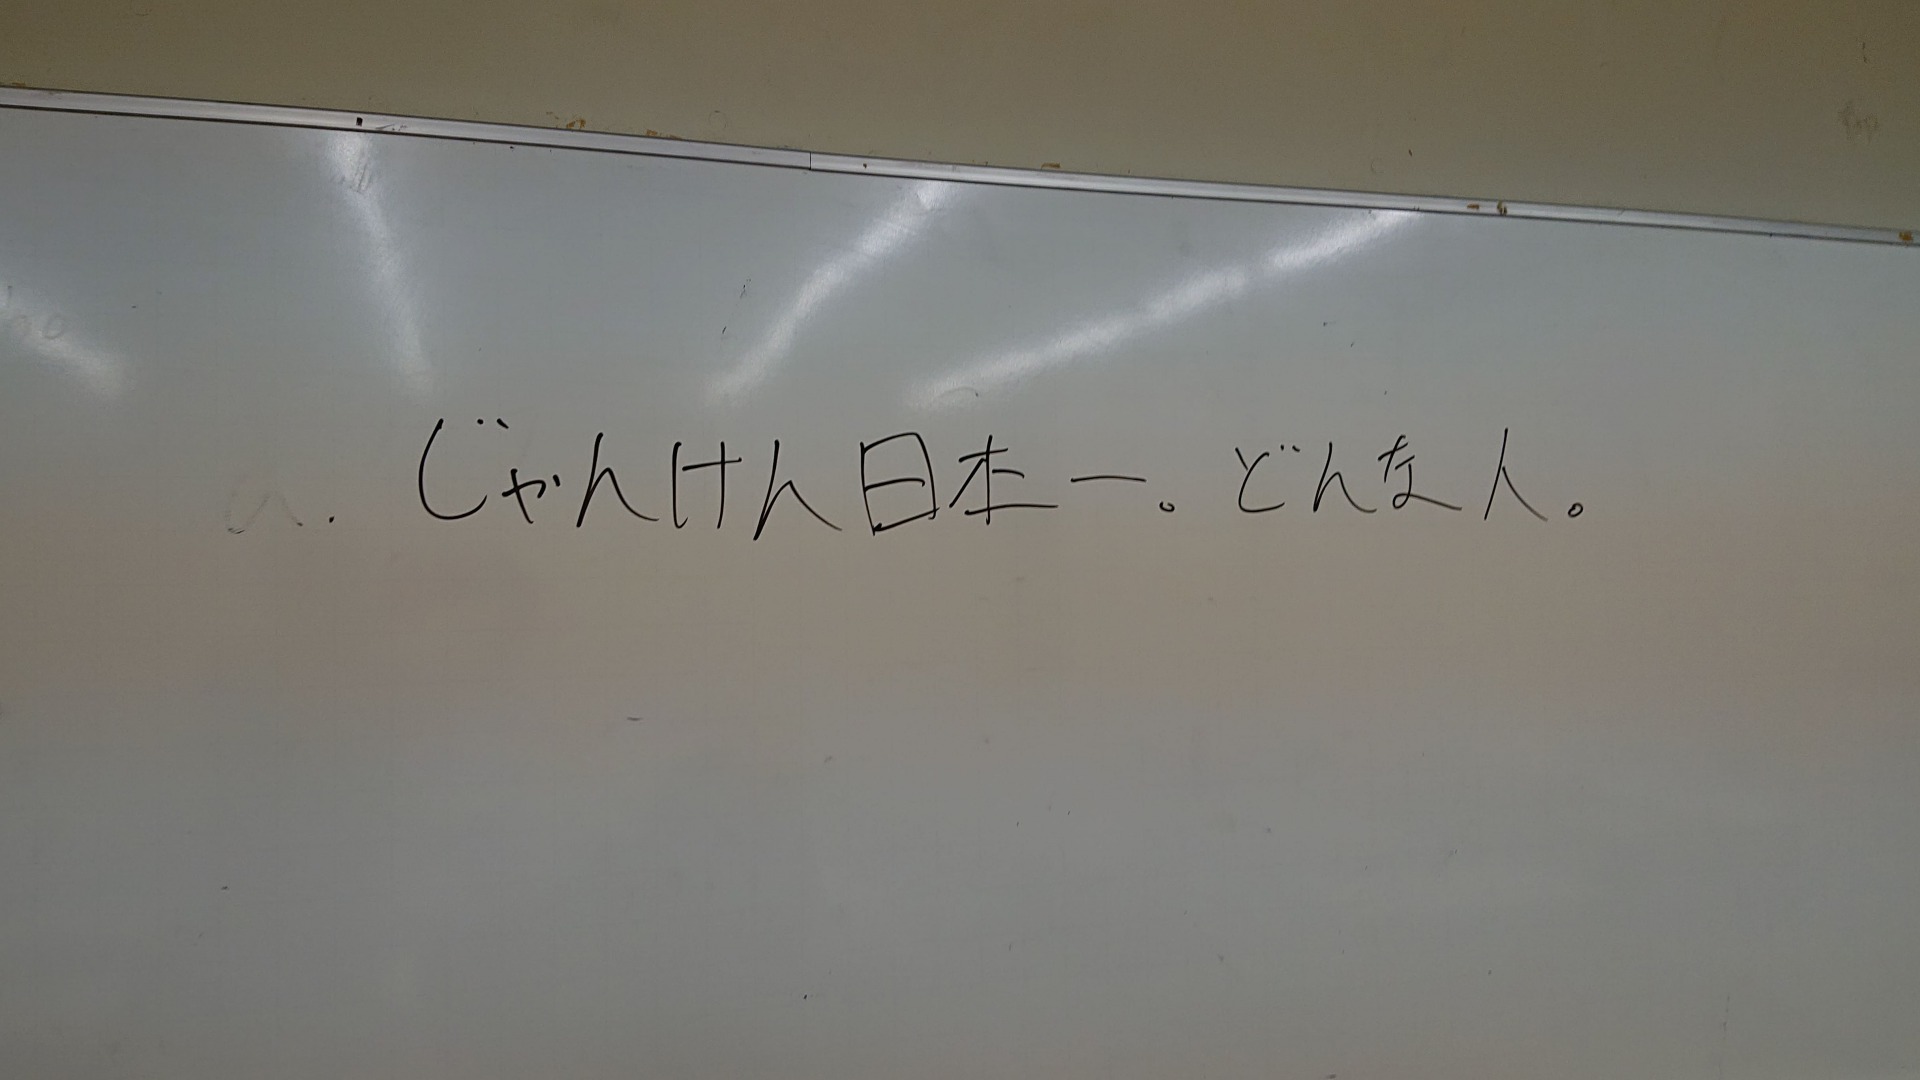 じゃんけん日本一。どんな人。